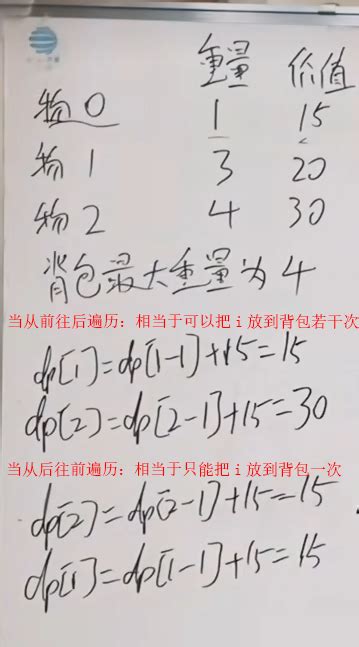 重量 价值
物0 1 15
物1 3 20
物2 4 30
背包最大重量为4
当从前往后遍历：相当于可以把i放到背包若干次
dp[1]=dp[1-1]+15=15
dp[2]=dp[2-1]+15=30
当从后往前遍历：相当于只能把i放到背包一次
dp[2]=dp[2-1]+15=15
dp[1]=dp[1-1]+15=15